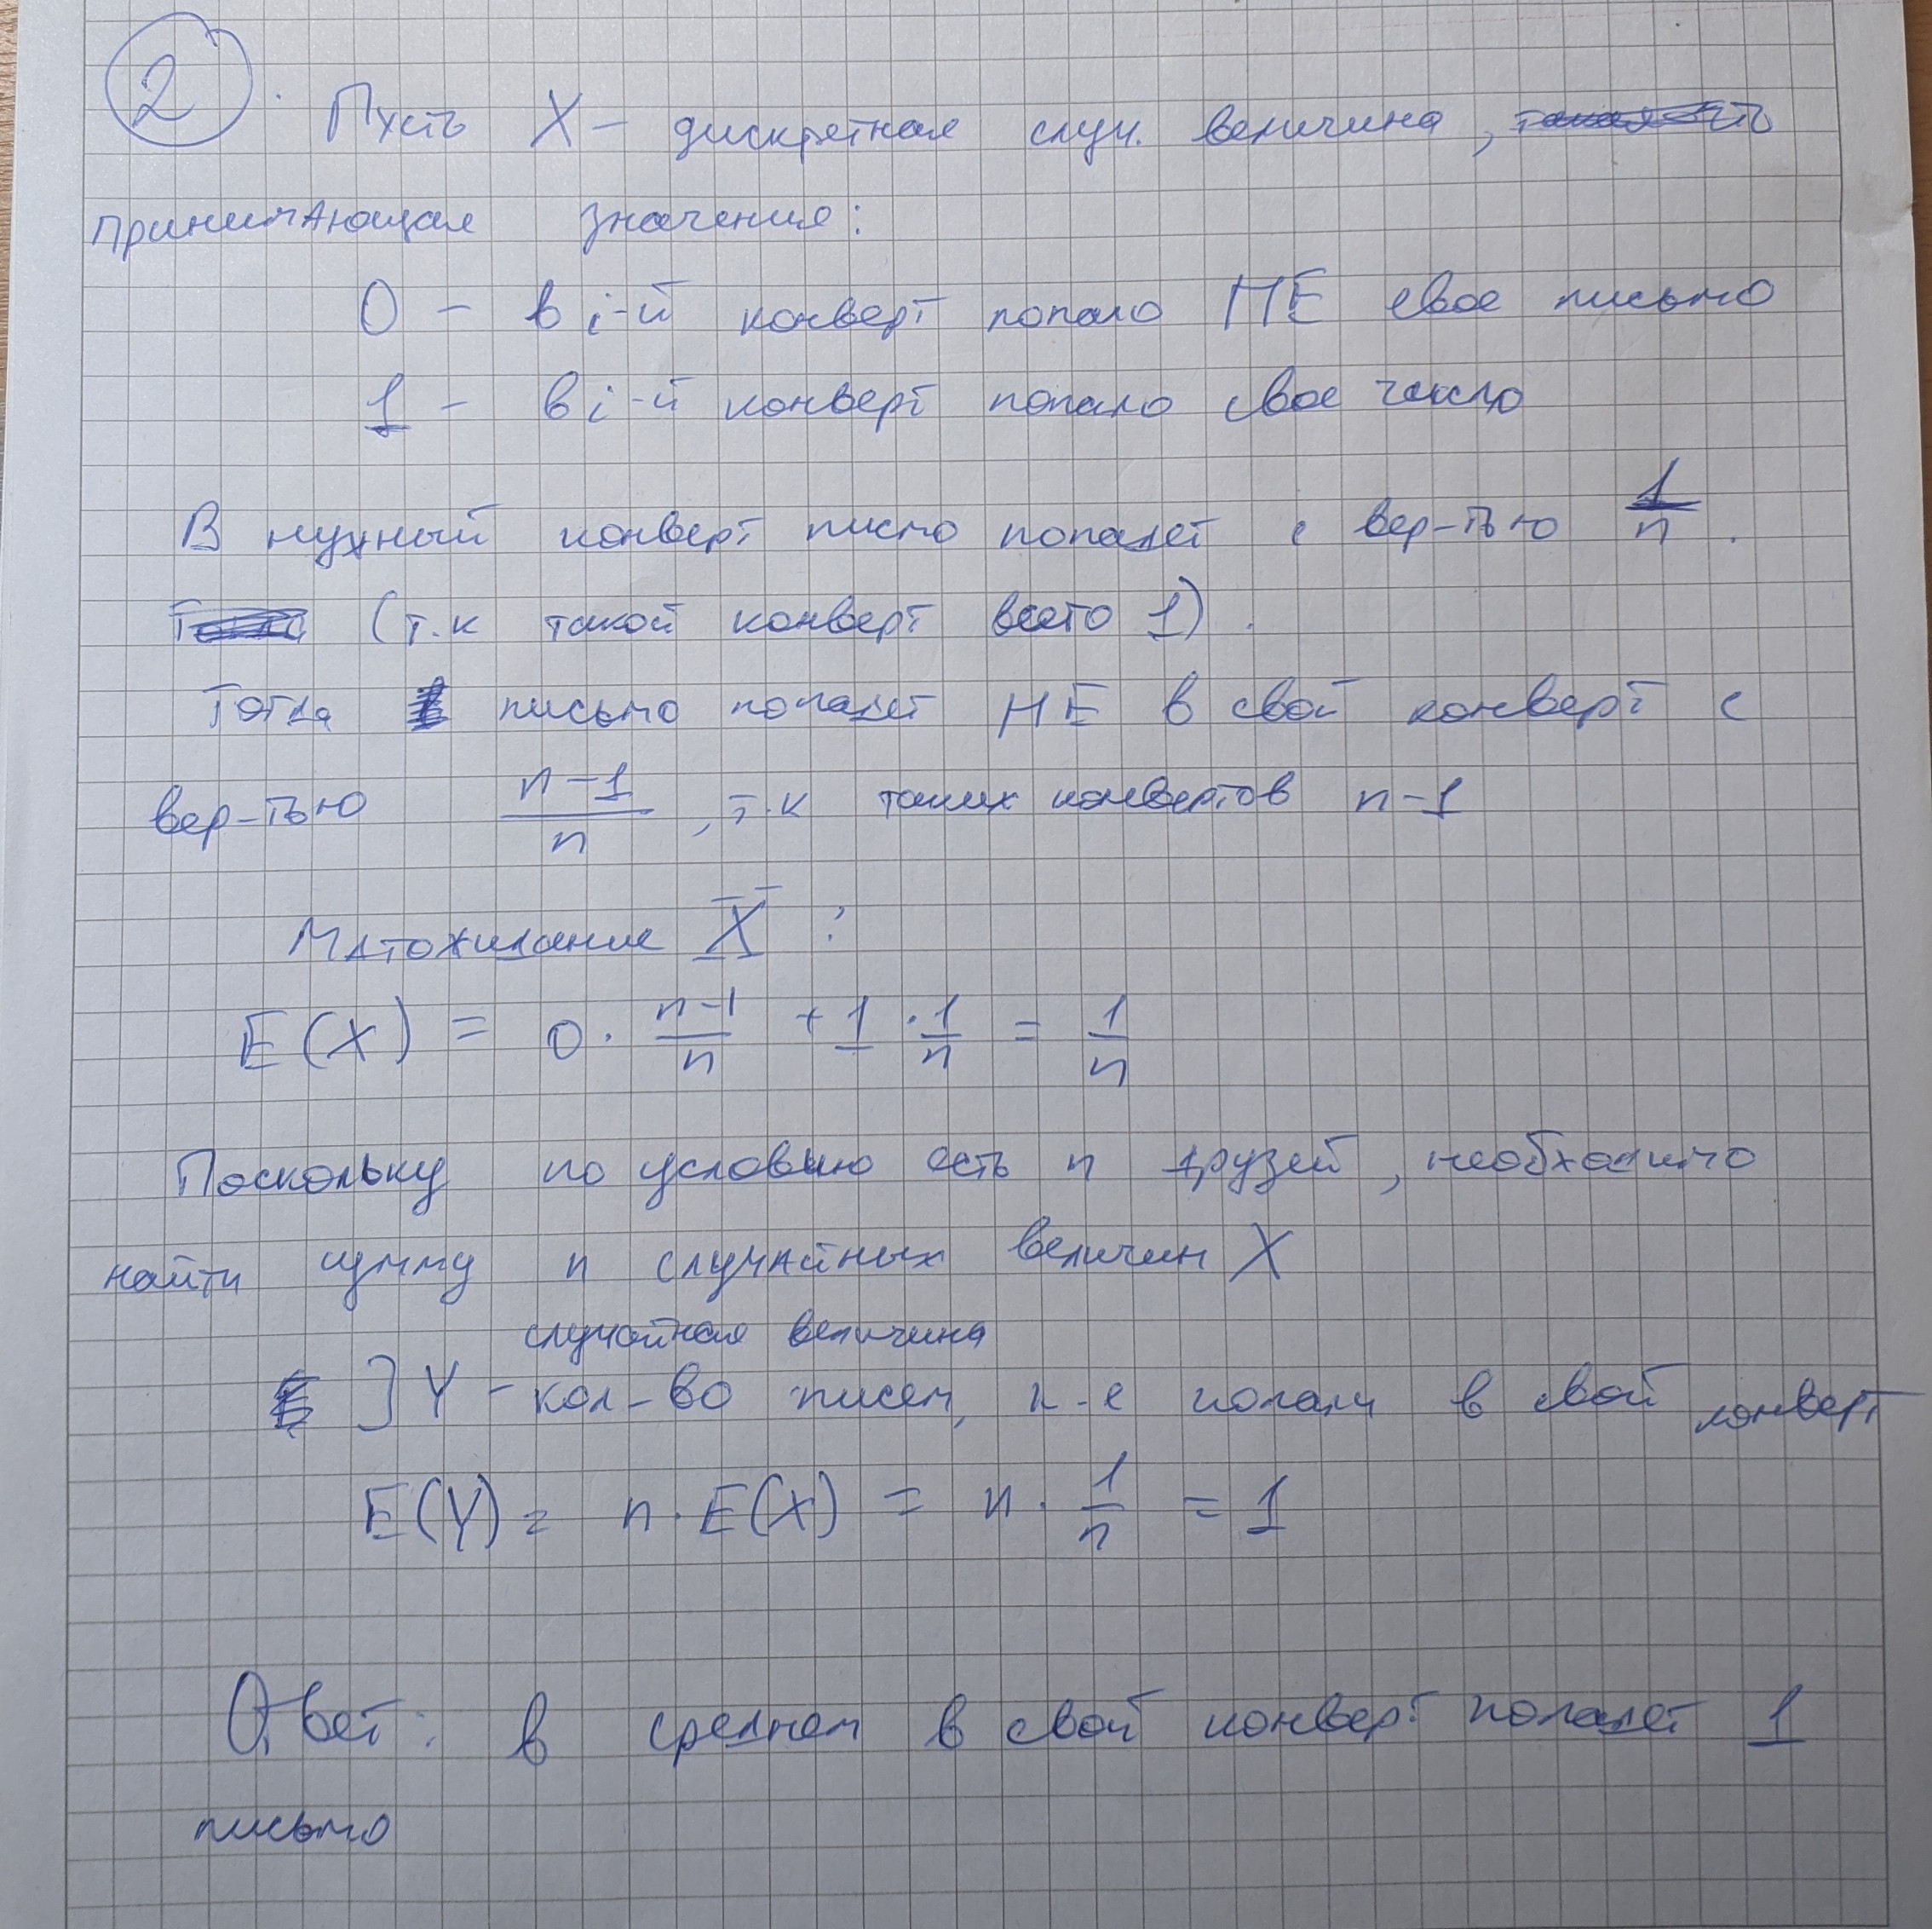 2. Пусть X – дискретная случ. величина,
принимающая значения:
0 – в i-й конверт попало НЕ свое письмо
1 – в i-й конверт попало свое число
В нужный конверт писмо попадет с вер-тью 1/n.
(т.к такой конверт всего 1).
Тогда письмо попадет НЕ в свой конверт с
вер-тью (n-1)/n, т.к таких конвертов n-1
Матожидание X:
E(X) = 0 · (n-1)/n + 1 · 1/n = 1/n
Поскольку по условию есть n друзей, необходимо
найти сумму n случайных величин X
случайная величина
] Y – кол-во писем, к-е попали в свой конверт
E(Y) = n · E(X) = n · 1/n = 1
Ответ: в среднем в свой конверт попадет 1
письмо